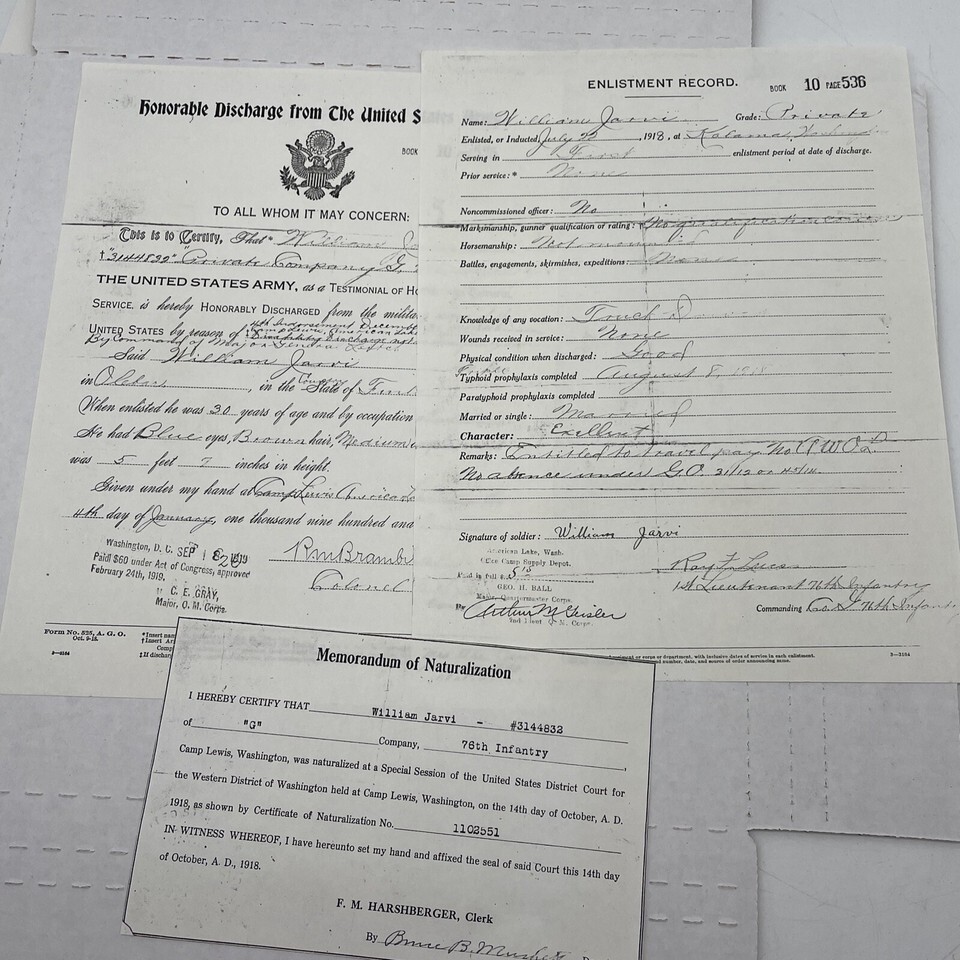 Honorable Discharge from The United S
BOOK
TO ALL WHOM IT MAY CONCERN:
This is to Certify, That* William Ja
†"3144832" Private Company G,
THE UNITED STATES ARMY, as a TESTIMONIAL OF HO
SERVICE, is hereby HONORABLY DISCHARGED from the milita
UNITED STATES by reason of ‡
By Command of Major General
Said William Jarvi
in , in the State of
When enlisted he was 30 years of age and by occupation
He had Blue eyes, Brown hair, Medium
was 5 feet 7 inches in height.
Given under my hand at Camp Lewis America
4th day of January, one thousand nine hundred and
Washington, D. C. SEP
Paid $60 under Act of Congress, approved
February 24th, 1919.
C. E. GRAY,
Major, Q. M. Corps.
Colonel
Form No. 525, A. G. O.
Oct. 9-18.
*Insert nam
†Insert Ar
Comp
‡If discharg
3—3164
ENLISTMENT RECORD.
BOOK 10 PAGE 536
Name: William Jarvi Grade: Private
Enlisted, or Inducted, July 20, 1918, at Kalama
Serving in First enlistment period at date of discharge.
Prior service:* None
Noncommissioned officer: No
Marksmanship, gunner qualification or rating:† No qualification
Horsemanship: Not mounted
Battles, engagements, skirmishes, expeditions: None
Knowledge of any vocation:
Wounds received in service: None
Physical condition when discharged: Good
Typhoid prophylaxis completed August 8, 1918
Paratyphoid prophylaxis completed
Married or single: Married
Character: Exellent
Remarks: Entitled to travel pay No
No absence under G.O. 31/12 or 45/14.
Signature of soldier: William Jarvi
American Lake, Wash.
Office Camp Supply Depot.
Paid in full $
GEO. H. BALL
Major, Quartermaster Corps.
By Arthur M Geisler
2nd Lieut Q. M. Corps.
1st Lieutenant 76th Infantry
Commanding Co. G 76th Infant
3—3164
Memorandum of Naturalization
I HEREBY CERTIFY THAT William Jarvi - #3144832
of "G" Company, 76th Infantry,
Camp Lewis, Washington, was naturalized at a Special Session of the United States District Court for
the Western District of Washington held at Camp Lewis, Washington, on the 14th day of October, A. D.
1918, as shown by Certificate of Naturalization No. 1102551
IN WITNESS WHEREOF, I have hereunto set my hand and affixed the seal of said Court this 14th day
of October, A. D., 1918.
F. M. HARSHBERGER, Clerk
By Bruce B.